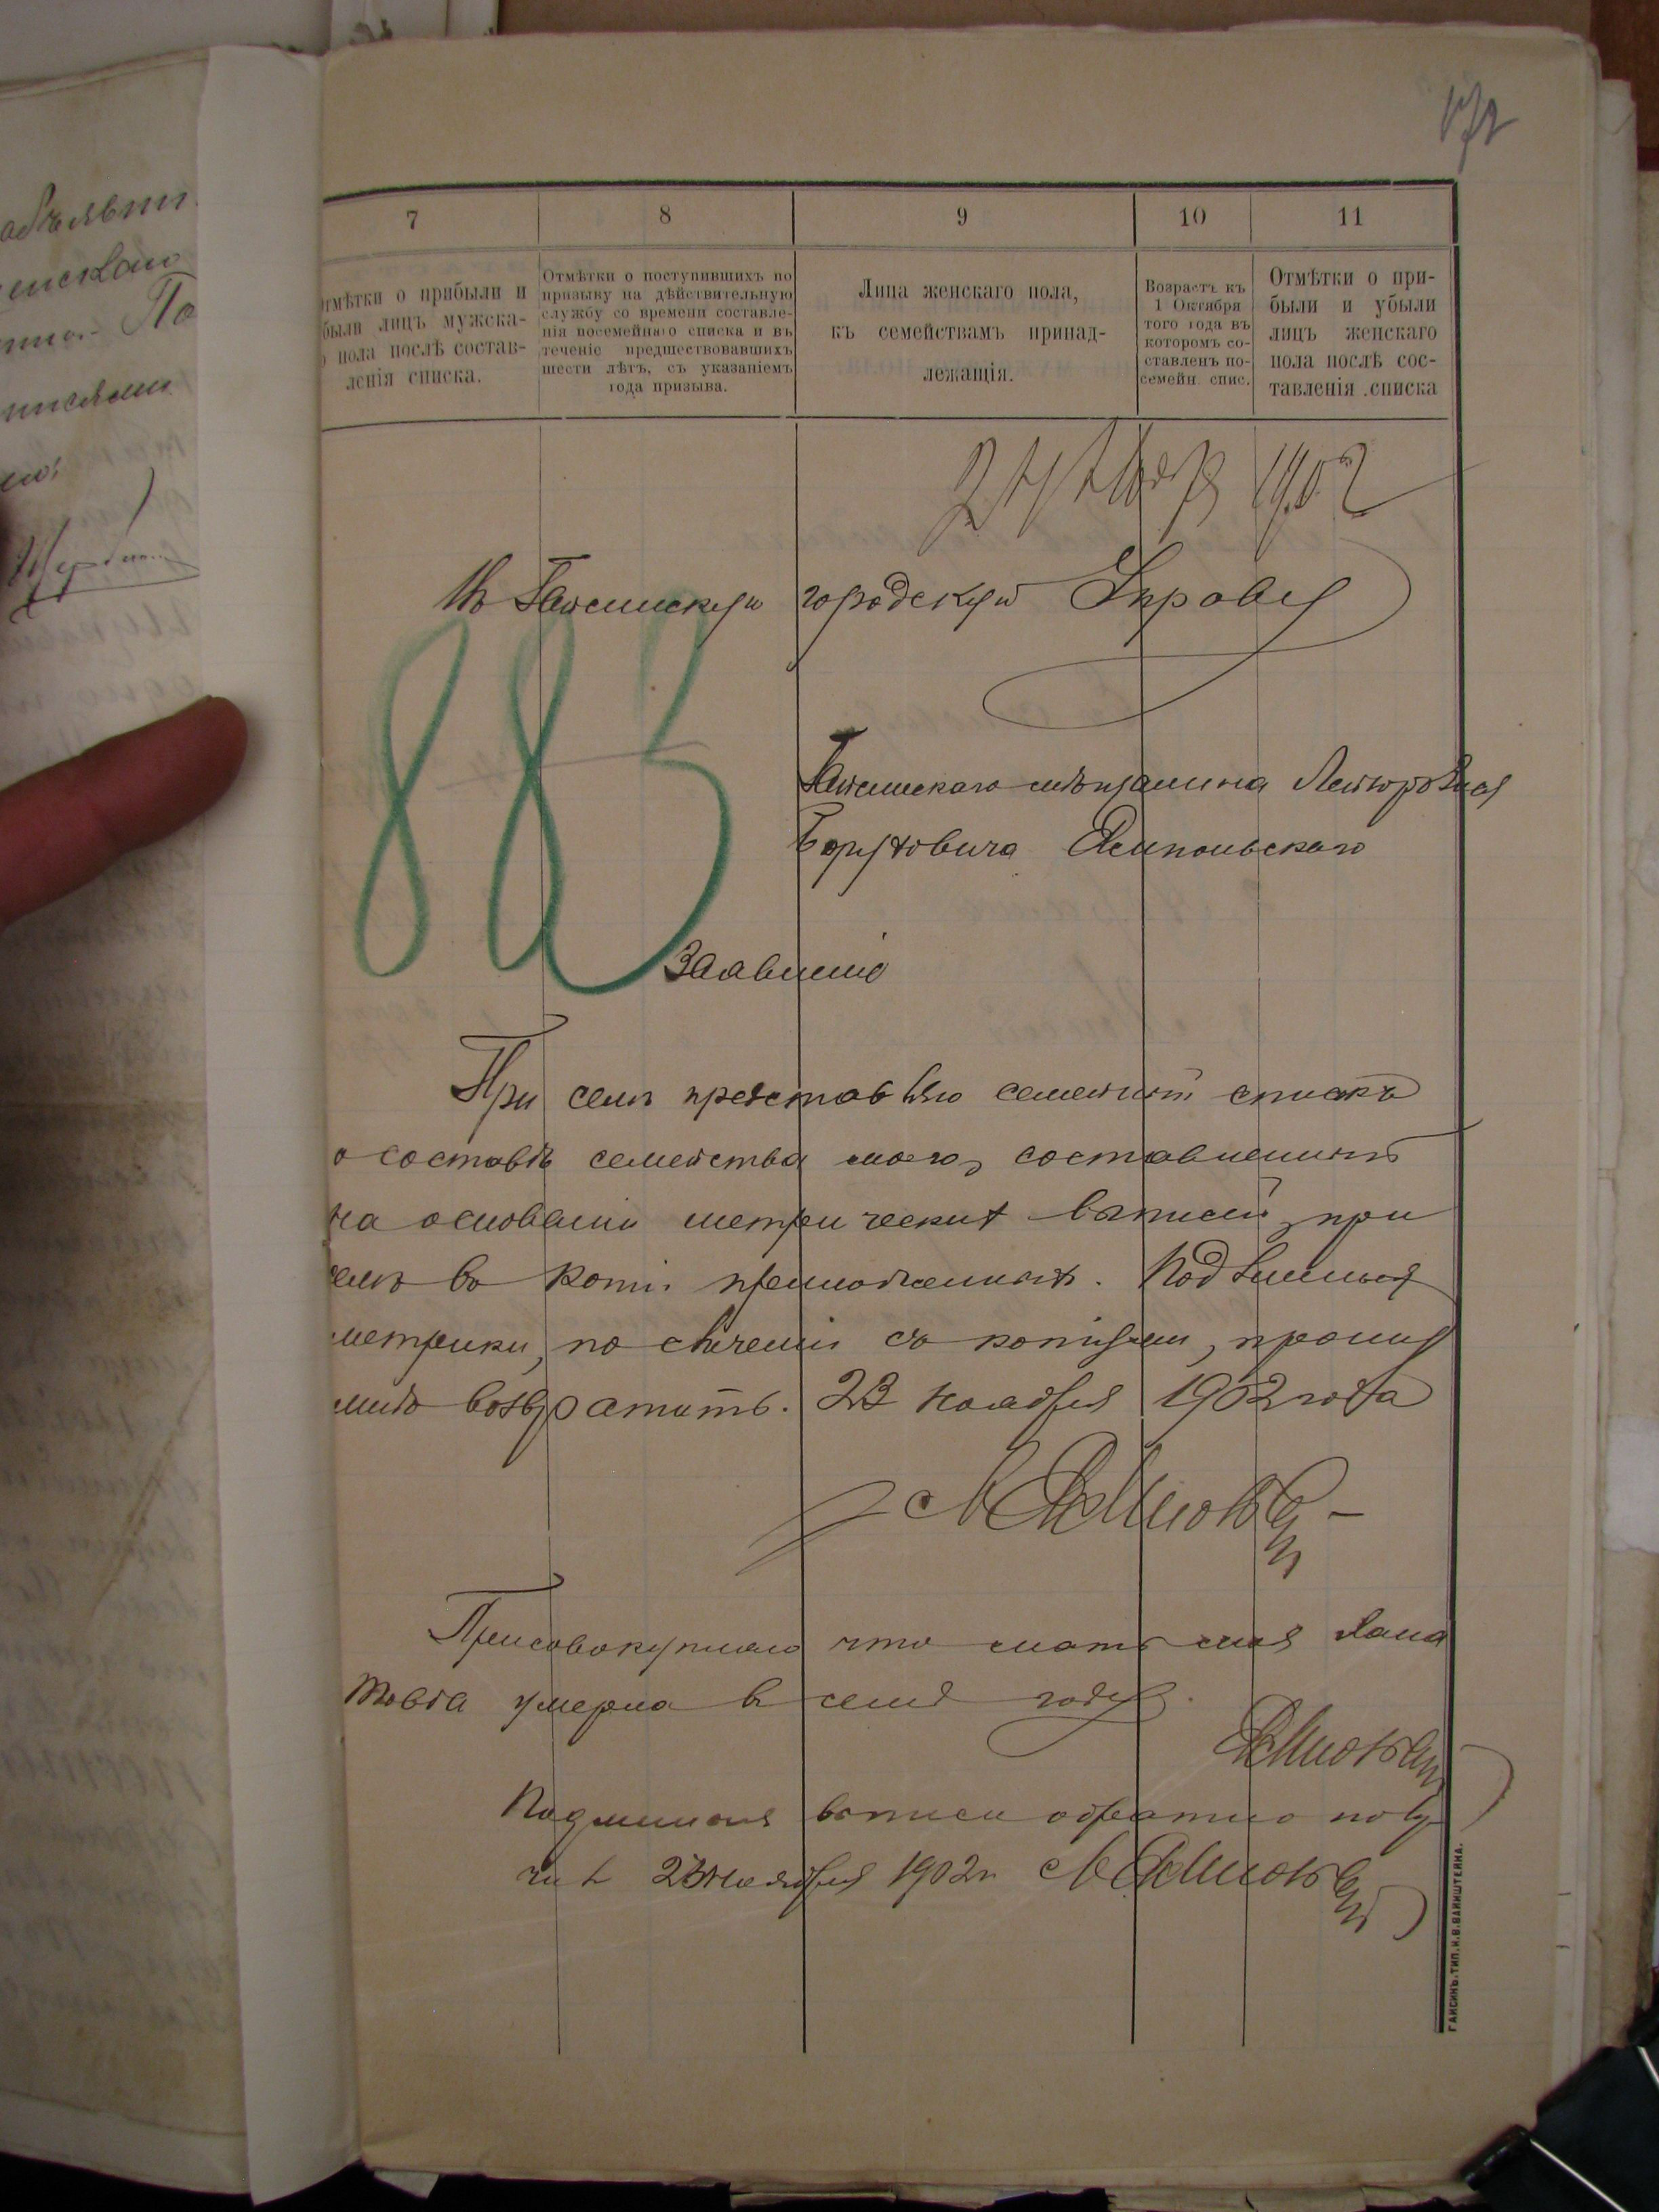 7 8 9 10 11
тмѣтки о прибыли и
были лицъ мужска-
о пола послѣ состав-
ленія списка.
Отмѣтки о поступившихъ по
призыву на дѣйствительную
службу со времени составле-
нія посемейнаго списка и въ
теченіе предшествовавшихъ
шести лѣтъ, съ указаніемъ
года призыва.
Лица женскаго пола,
къ семействамъ принад-
лежащія.
Возрастъ къ
1 Октября
того года въ
которомъ со-
ставленъ по-
семейн. спис.
Отмѣтки о при-
были и убыли
лицъ женскаго
пола послѣ сос-
тавленія списка
1902
Въ Гайсинскую городскую Управу
883
Гайсинскаго мѣщанина
Боруховича Ямпольскаго
Заявленіе
При семъ представляю семейный списокъ
о составѣ семейства моего, составленный
на основаніи метрическихъ выписей, при
семъ въ копіи приложенныхъ. Подлинныя
метрики, по свѣреніи съ копіями, прошу
мнѣ возвратить. 23 ноября 1902 года
Присовокупляю что мать моя
умерла въ семъ году.
Подлинныя выписи обратно полу
чилъ 23 ноября 1902 г
ГАЙСИНЪ. ТИП. И. В. ВАЙНШТЕЙНА.